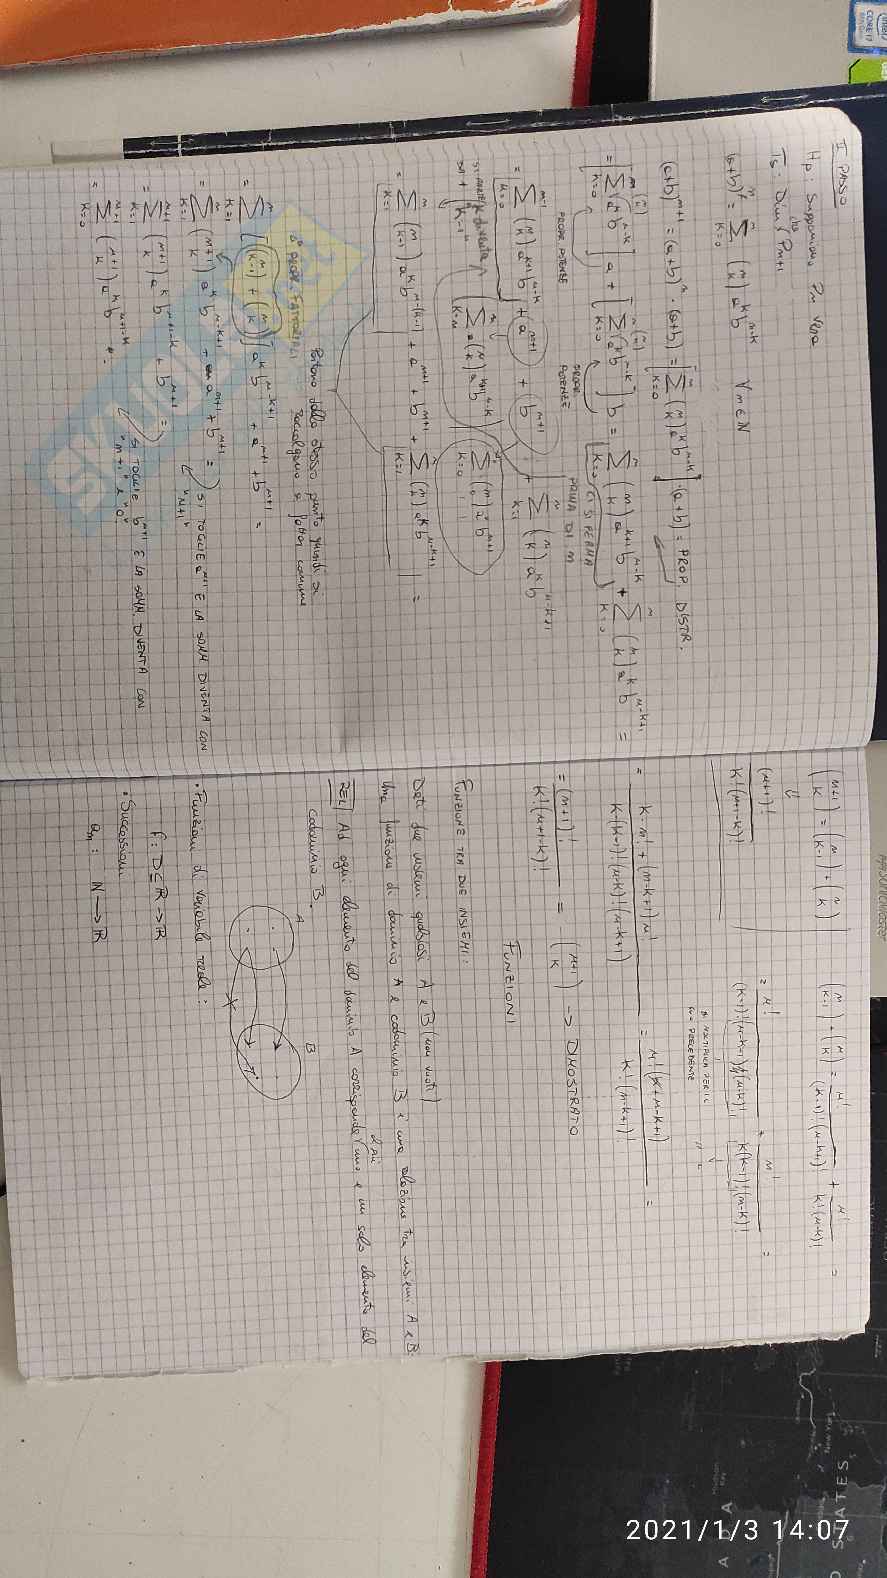 II PASSO
Hp: Supponiamo Pn vera
Ts: Dim che Pn+1
(a+b)^n = ∑_{k=0}^{n} (n k) a^k b^{n-k} ∀ n∈N
(a+b)^{n+1} = (a+b)^n · (a+b) = [∑_{k=0}^{n} (n k) a^k b^{n-k}] · (a+b) = PROP. DISTR.
= [∑_{k=0}^{n} (n k) a^k b^{n-k}] a + [∑_{k=0}^{n} (n k) a^k b^{n-k}] b = ∑_{k=0}^{n} (n k) a^{k+1} b^{n-k} + ∑_{k=0}^{n} (n k) a^k b^{n-k+1} =
PROPR POTENZE PROPR POTENZE CI SI FERMA PRIMA DI n
= ∑_{k=0}^{n-1} (n k) a^{k+1} b^{n-k} + a^{n+1} + b^{n+1} + ∑_{k=1}^{n} (n k) a^k b^{n-k+1}
= ∑_{k=1}^{n} (n k-1) a^k b^{n-(k-1)} + a^{n+1} + b^{n+1} + ∑_{k=1}^{n} (n k) a^k b^{n-k+1} =
Partono dallo stesso punto quindi si
raccolgono a fattor comune
= ∑_{k=1}^{n} [(n k-1) + (n k)] a^k b^{n-k+1} + a^{n+1} + b^{n+1} =
2° PROPR. FATTORIALI
= ∑_{k=1}^{n} (n+1 k) a^k b^{n-k+1} + a^{n+1} + b^{n+1} =
SI TOGLIE a^{n+1} E LA SOMM. DIVENTA CON
"n+1"
= ∑_{k=1}^{n+1} (n+1 k) a^k b^{n+1-k} + b^{n+1} =
SI TOGLIE b^{n+1} E LA SOMM. DIVENTA CON
"n+1" e "0"
= ∑_{k=0}^{n+1} (n+1 k) a^k b^{n+1-k}
SKUOLA.net
(n+1 k) = (n k-1) + (n k)
(n k-1) + (n k) = n!/(k-1)!(n-k+1)! + n!/k!(n-k)! =
(n+1)!/k!(n+1-k)!
= n!/(k-1)!(n-k+1)(n-k)! + n!/k(k-1)!(n-k)! =
SI MOLTIPLICA PER IL
PRECEDENTE
= k·n! + (n-k+1)n!/k(k-1)!(n-k)!(n-k+1) = n!(k+n-k+1)/k!(n-k+1)! =
= (n+1)!/k!(n+1-k)! = (n+1 k) → DIMOSTRATO
FUNZIONI
FUNZIONE TRA DUE INSIEMI:
Dati due insiemi qualsiasi A e B (non vuoti)
una funzione di dominio A e codominio B è una relazione tra insiemi A e B.
REL Ad ogni elemento del dominio A corrisponde uno e un solo elemento del
codominio B.
A B
• Funzioni di variabile reale:
f: D⊆R → R
• Successioni
an: N → R
CORE i7
STATES
New York
2021/1/3 14:07